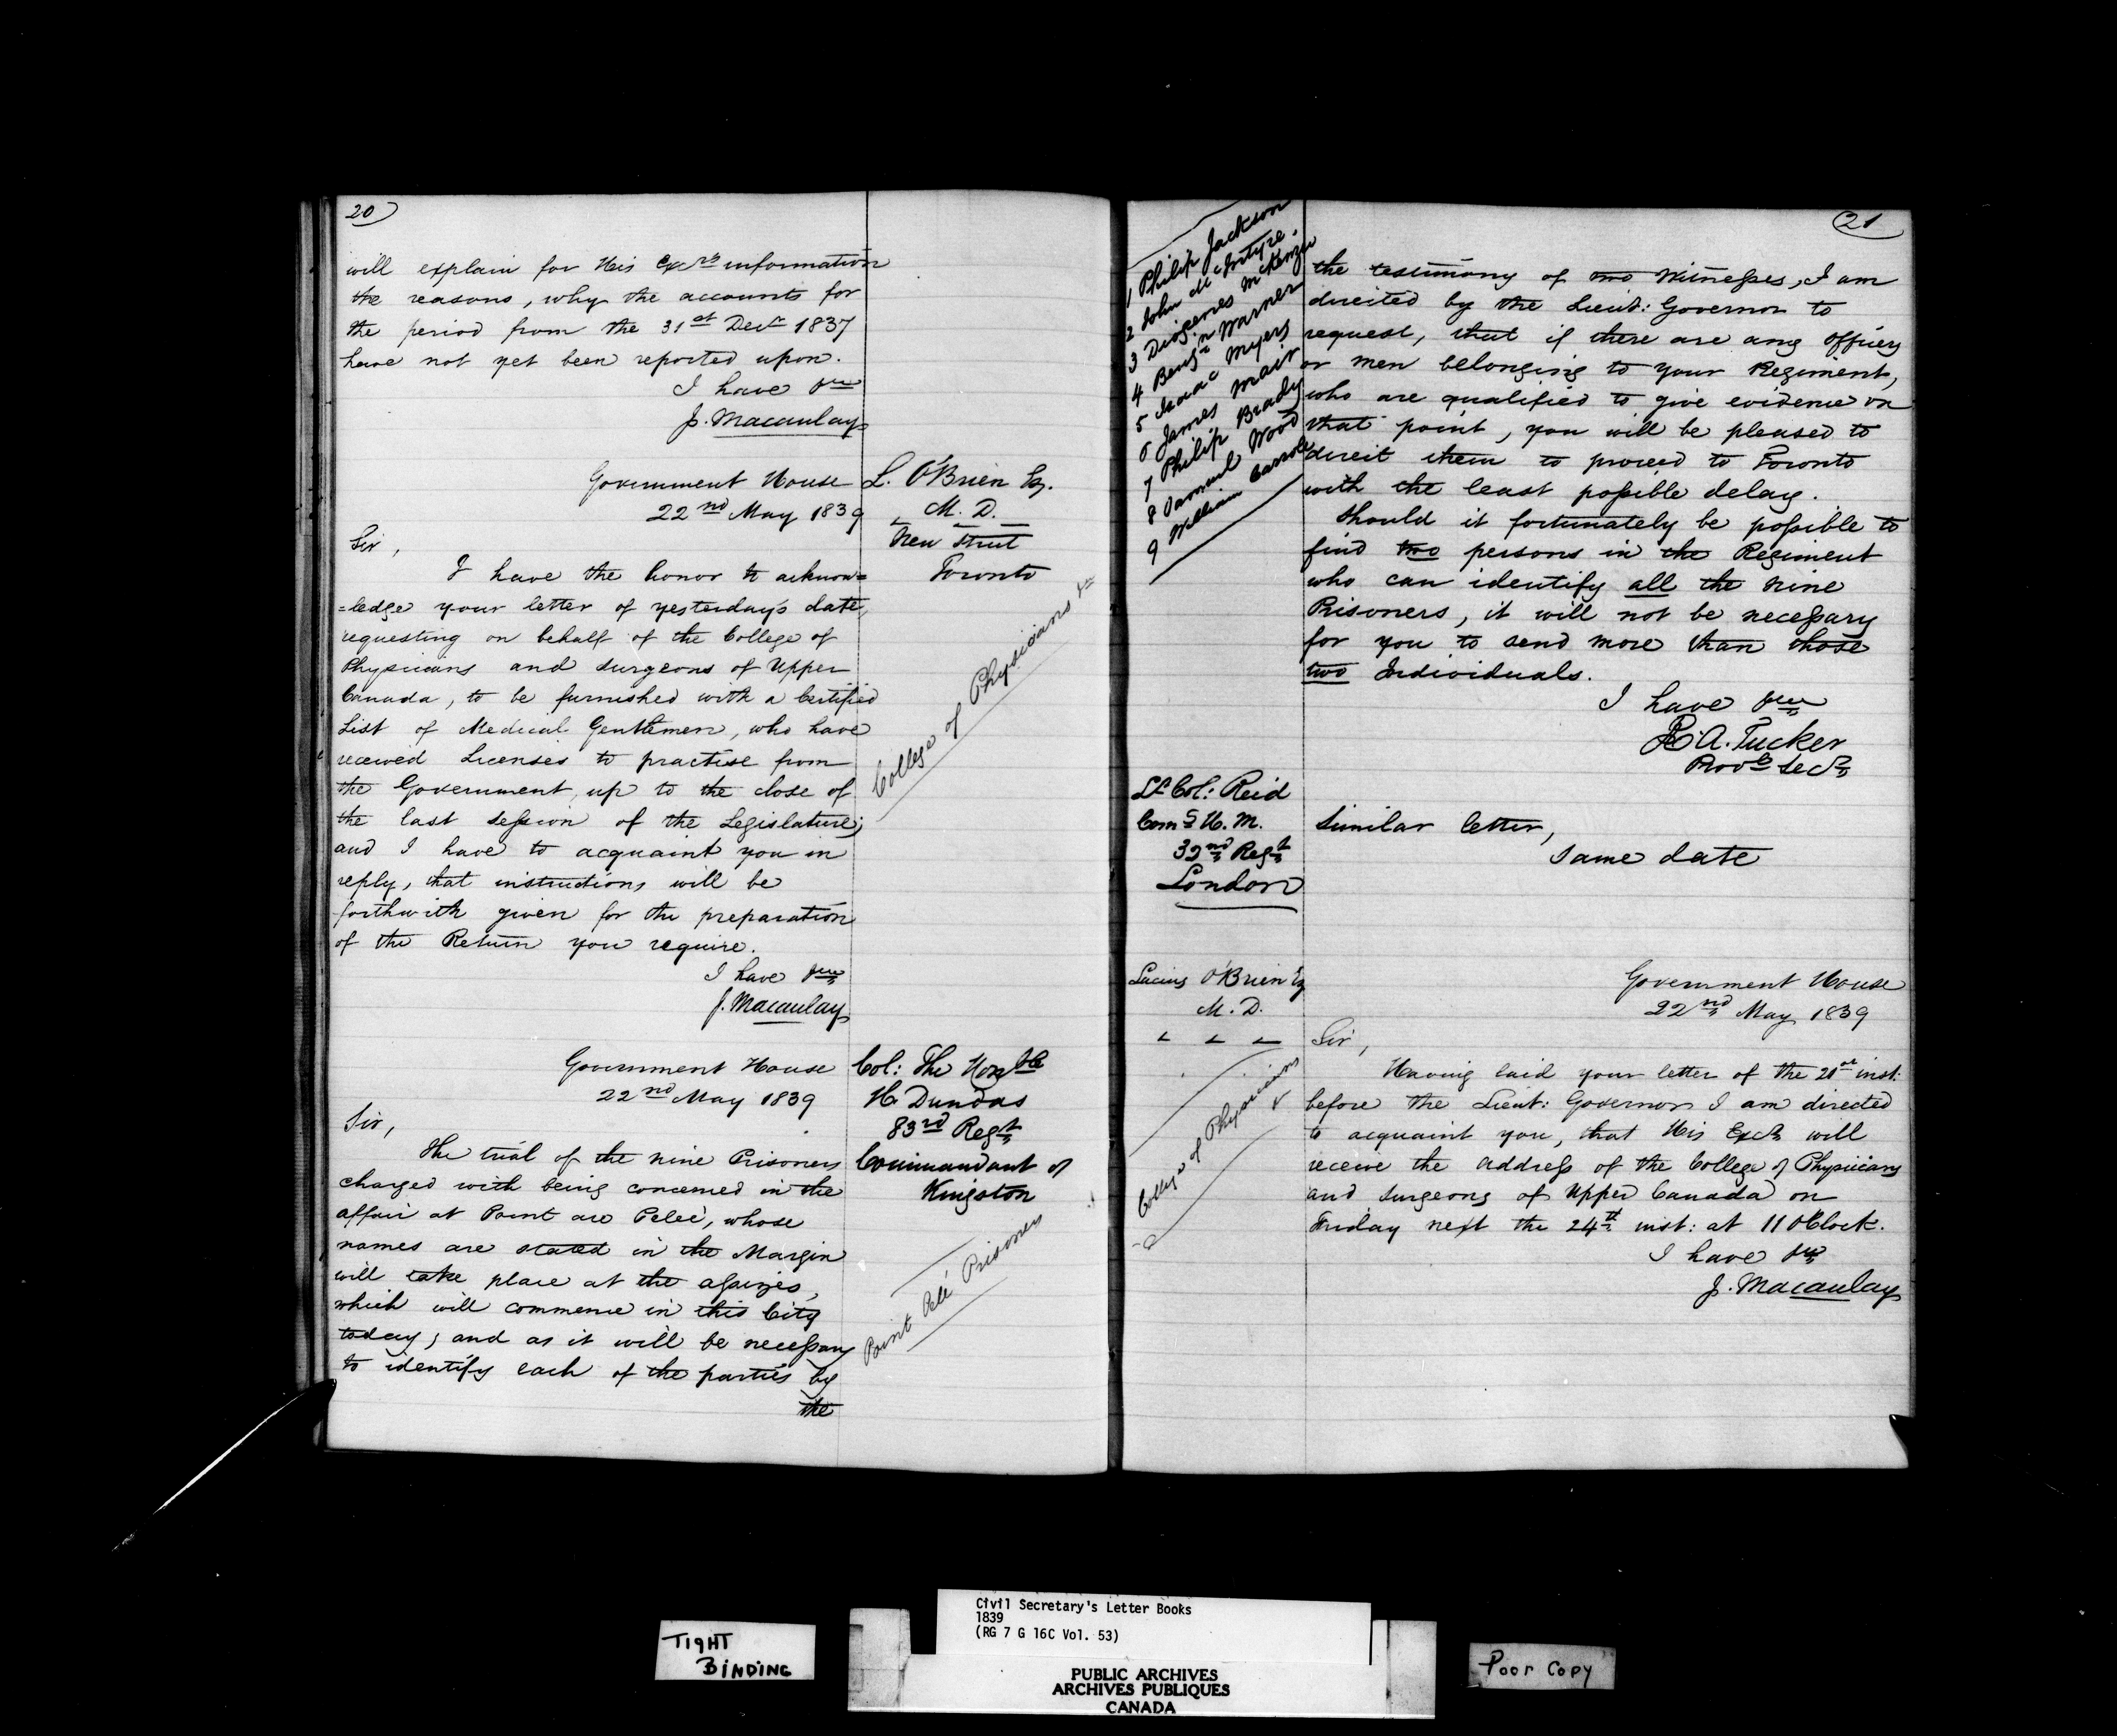 20
will explain for His Excys information
the reasons, why the accounts for
the period from the 31st Decr 1837
have not yet been reported upon.
I have
J. Macaulay
Government House
22nd May 1839
L. O'Brien Esq.
M. D.
New Street
Toronto
Sir,
I have the honor to acknow=
=ledge your letter of yesterday's date,
requesting on behalf of the College of
Physicians and Surgeons of Upper
Canada, to be furnished with a Certified
List of Medical Gentlemen, who have
received Licenses to practise from
the Government, up to the close of
the last session of the Legislature;
and I have to acquaint you in
reply, that instructions will be
forthwith given for the preparation
of the Return you require.
College of Physicians &c
I have
J. Macaulay
Government House
22nd May 1839
Col: The Honble
H Dundas
83rd Regt
Commandant of
Kingston
Sir,
The trial of the nine Prisoners
charged with being concerned in the
affair at Point au Peleè, whose
names are stated in the Margin
will take place at the assizes,
which will commence in this City
today; and as it will be necessary
to identify each of the parties by
the
Point Pelé Prisoners
21
1 Philip Jackson
2 John McIntyre.
3 Diogenes McKenzie
4 Benjn Warner
5 Isaac Myers
6 James Mair
7 Philip Brady
8 Samuel Wood
9 William Carrole
the testimony of two Witnesses, I am
directed by the Lieut: Governor to
request, that if there are any Officers
or men belonging to your Regiment,
who are qualified to give evidence on
that point, you will be pleased to
direct them to proceed to Toronto
with the least possible delay.
Should it fortunately be possible to
find two persons in the Regiment
who can identify all the nine
Prisoners, it will not be necessary
for you to send more than those
two Individuals.
I have
R. A. Tucker
Provl Secy
Lt Col: Reid
Comg H. M.
32nd Regt
London
Similar letter,
Same date
Lucius O'Brien Esq
M. D.
Government House
22nd May 1839
Sir,
Having laid your letter of the 21st inst:
before the Lieut: Governor I am directed
to acquaint you, that His Excy will
receive the address of the College of Physicians
and Surgeons of Upper Canada on
Friday next the 24th inst: at 11 OClock.
College of Physicians &
I have
J. Macaulay
TIGHT
BINDING
Civil Secretary's Letter Books
1839
(RG 7 G 16C Vol. 53)
PUBLIC ARCHIVES
ARCHIVES PUBLIQUES
CANADA
Poor Copy